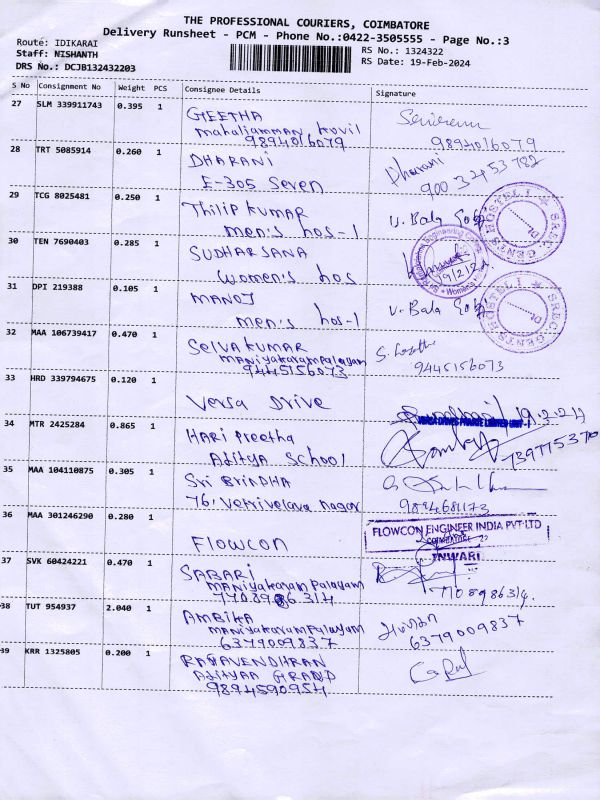 THE PROFESSIONAL COURIERS, COIMBATORE
Delivery Runsheet - PCM - Phone No.:0422-3505555 - Page No.:3
Route: IDIKARAI
RS No.: 1324322
Staff: NISHANTH
RS Date: 19-Feb-2024
DRS No.: DCJB132432203
S No Consignment No Weight PCS Consignee Details Signature
27 SLM 339911743 0.395 1 GEETHA
mahaliamman kovil
9894016079 9894016079
28 TRT 5085914 0.260 1 DHARANI Dharani
E-305 Seven 9003453782
29 TCG 8025481 0.250 1 Thilip kumar
men's hos-1 v. Bala
SREC GENTS HOSTEL I
30 TEN 7690403 0.285 1 SUDHARSANA
women's hos 19/2/24
31 DPI 219388 0.105 1 MANOJ v. Bala
men's hos-1
SREC GENTS HOSTEL I
32 MAA 106739417 0.470 1 Selva kumar
maniyakarampalayam
9445156073 9445156073
33 HRD 339794675 0.120 1
Versa Drive 19.2.24
34 MTR 2425284 0.865 1 HARI Preetha
Aditya School
35 MAA 104110875 0.305 1 Sri BrinDHA
76, Vetrivelava nagar 9894681173
36 MAA 301246290 0.280 1
FLOWCON ENGINEER INDIA PVT LTD
COIMBATORE
Flowcon INWARD
37 SVK 60424221 0.470 1 SABARI
maniyakaram Palayam
7708986314 7708986314
38 TUT 954937 2.040 1 AMBIKA
maniyakarampalayam
6379009837 6379009837
39 KRR 1325805 0.200 1 RAGAVENDHRAN
Adityaa GRAND
9894590954